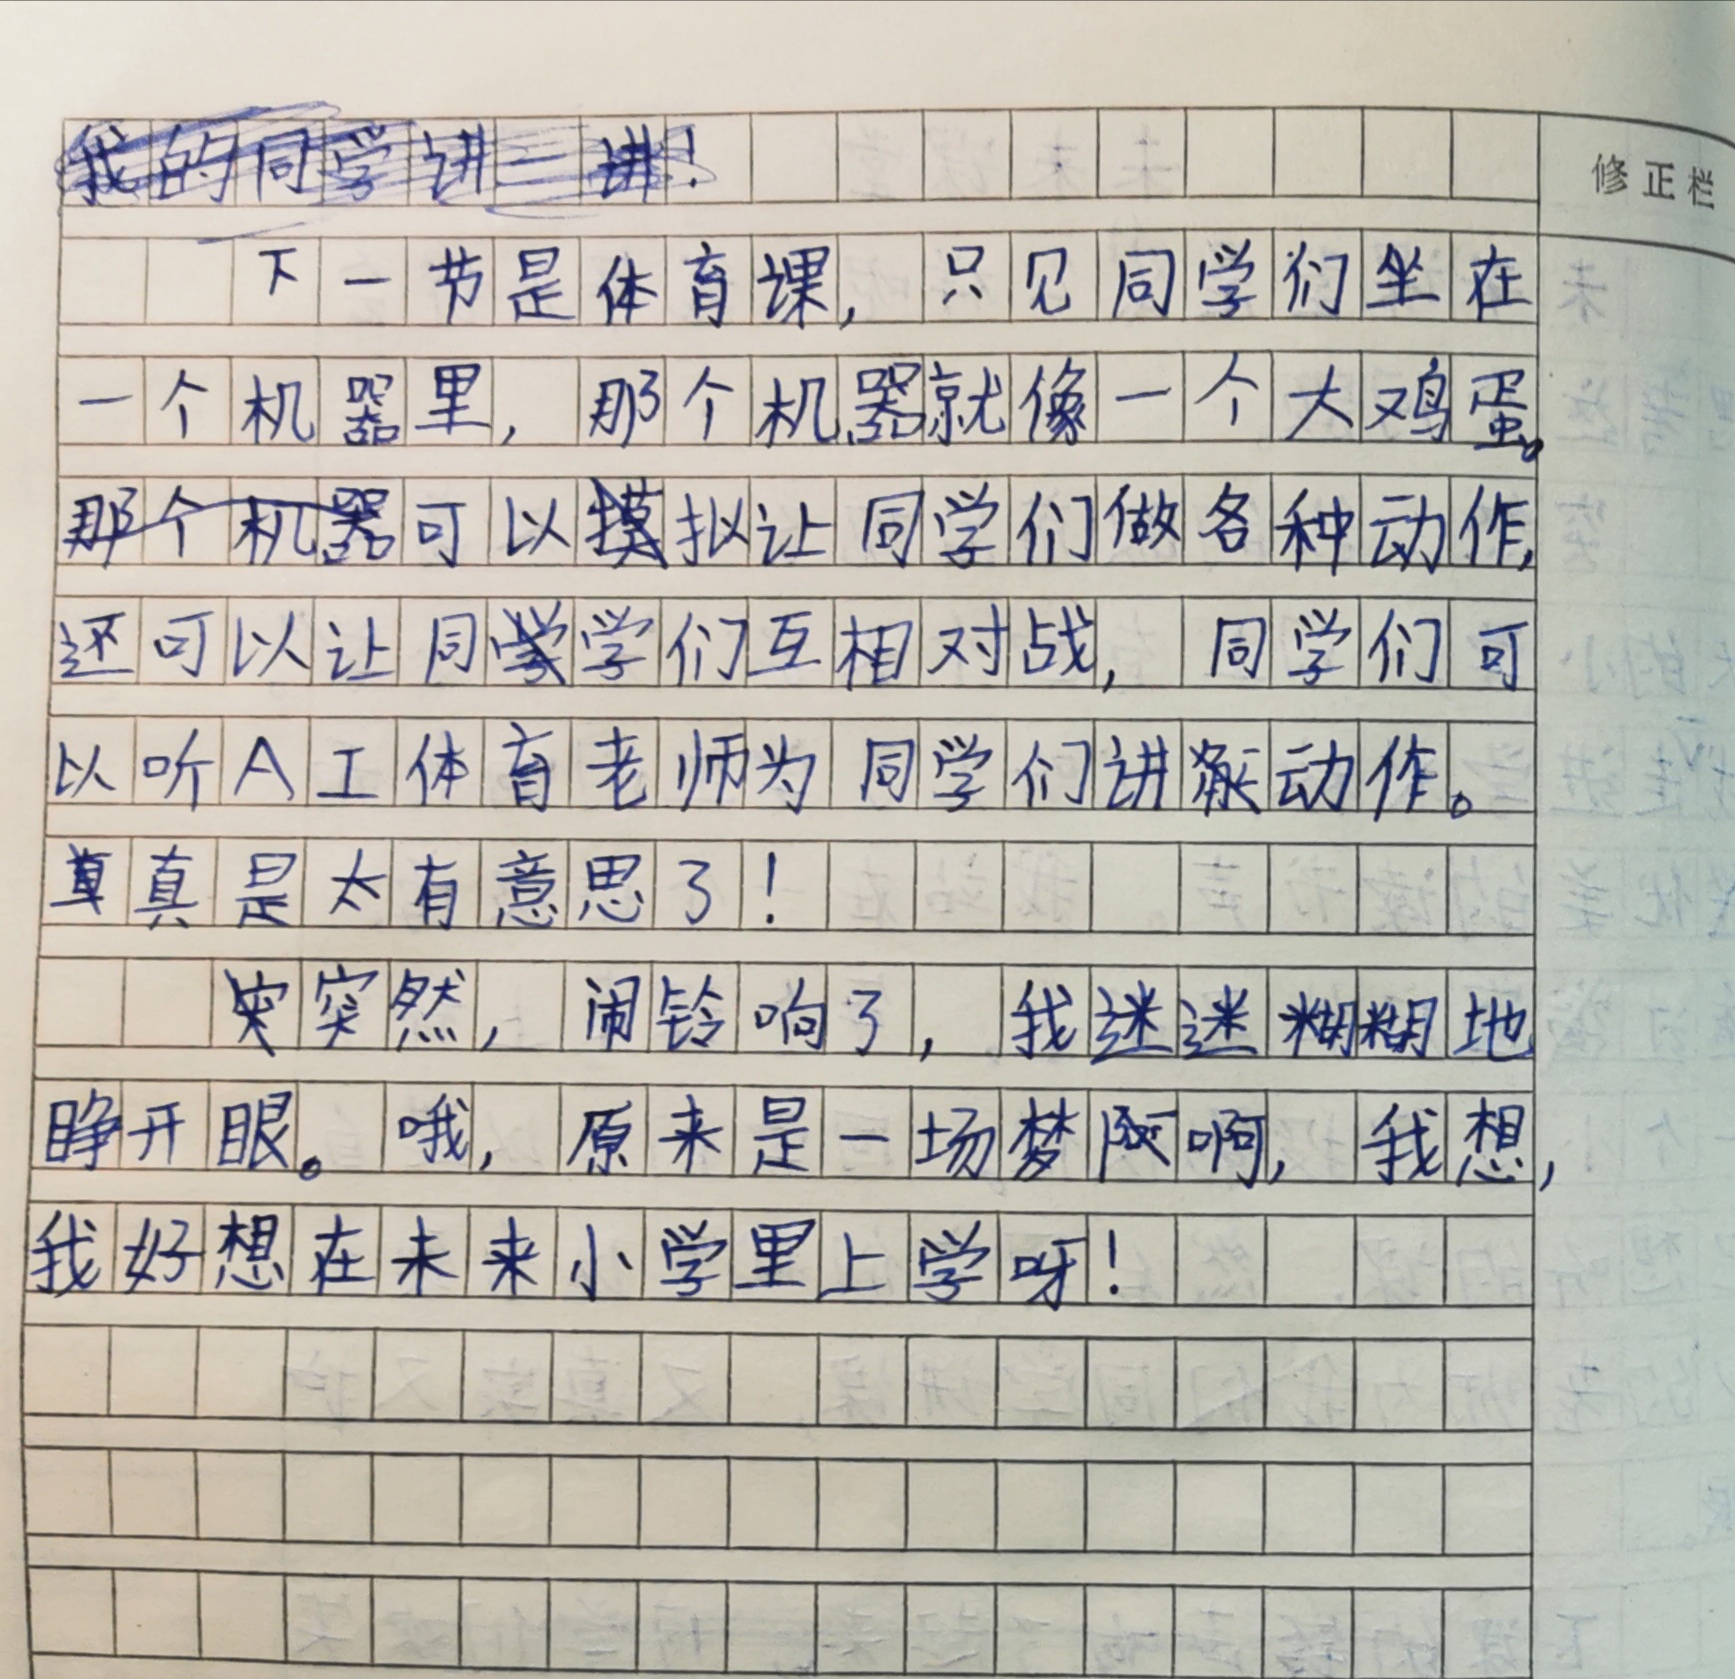 我的同学讲一讲！
修正栏
下一节是体育课，只见同学们坐在
一个机器里，那个机器就像一个大鸡蛋。
那个机器可以摸拟让同学们做各种动作，
还可以让同学学们互相对战，同学们可
以听AI体育老师为同学们讲动作。
真是太有意思了！
突然，闹铃响了，我迷迷糊糊地
睁开眼。哦，原来是一场梦啊，我想，
我好想在未来小学里上学呀！